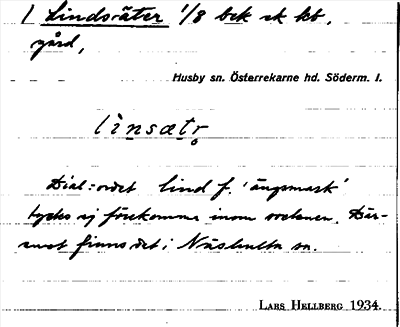 / Lindsäter 1/8 bck sk kb,
gård,
Husby sn. Österrekarne hd. Söderm. l.
lìnsætr̥
Dial-ordet lind f. 'ängsmark'
tycks ej förekomma inom socknen. Där-
emot finns det i Näshulta sn.
LARS HELLBERG 1934.